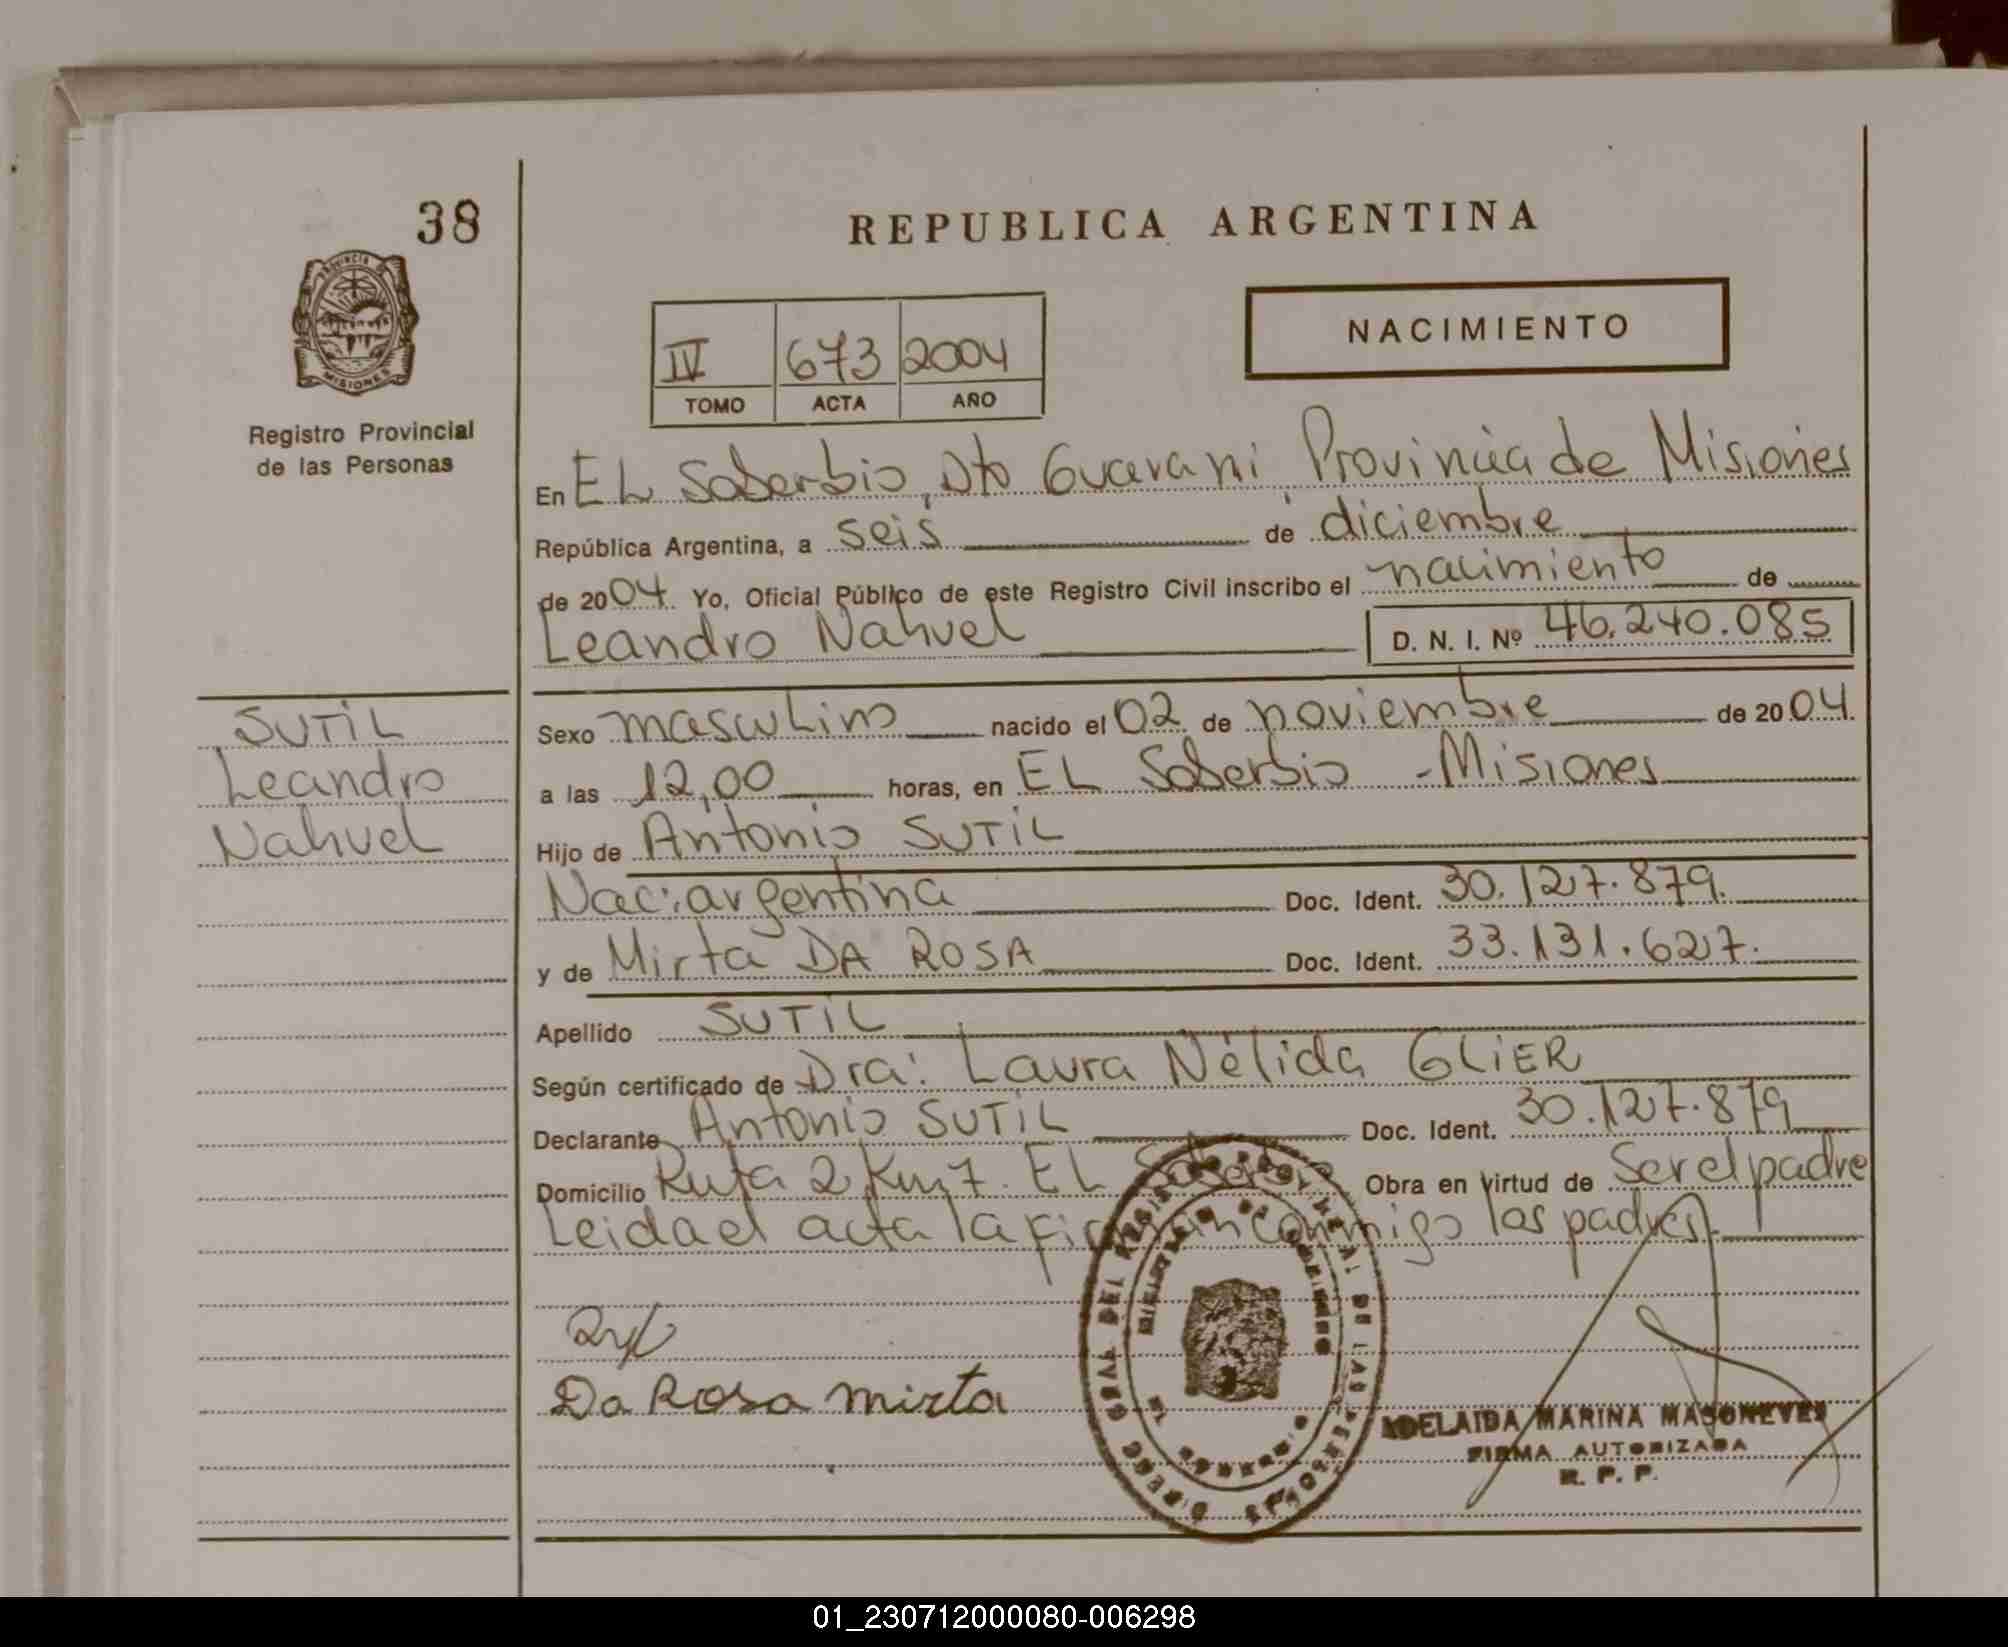 38
REPUBLICA ARGENTINA
PROVINCIA DE
MISIONES
NACIMIENTO
IV 673 2004
TOMO ACTA AÑO
Registro Provincial
de las Personas
En EL Soberbio, Dto Guarani, Provincia de Misiones
República Argentina, a seis de diciembre
de 2004. Yo, Oficial Público de este Registro Civil inscribo el nacimiento de
Leandro Nahuel D. N. I. Nº 46.240.085
SUTIL
Leandro
Nahuel
Sexo masculino nacido el 02 de noviembre de 2004.
a las 12,00 horas, en EL Soberbio - Misiones
Hijo de Antonio SUTIL
Nac: argentina Doc. Ident. 30.127.879.
y de Mirta DA ROSA Doc. Ident. 33.131.627.
Apellido SUTIL
Según certificado de Dra: Laura Nélida GLIER
Declarante Antonio SUTIL Doc. Ident. 30.127.879
Domicilio Ruta 2 Km 7. EL Soberbio Obra en virtud de Ser el padre
Leida el acta la firman conmigo los padres.
Da Rosa mirta
ADELAIDA MARINA
FIRMA AUTORIZADA
R. P. P.
01_230712000080-006298